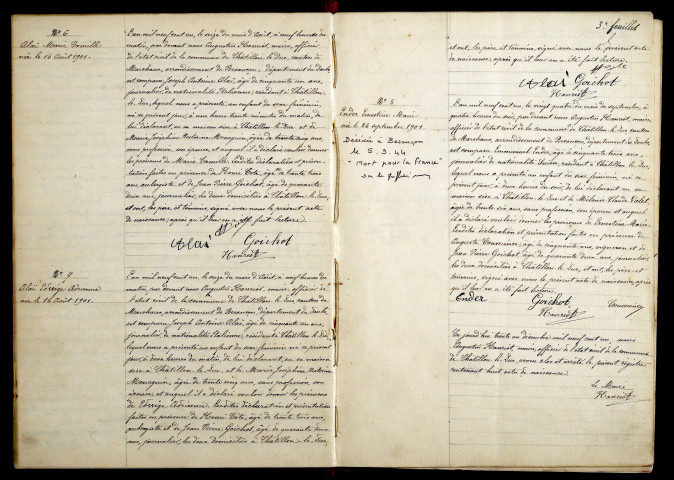 Nº 6
Alaï Marie Camille
née le 16 Août 1901.
L'an mil neuf cent un, le seize du mois d'Août, à neuf heures du
matin, par devant nous Augustin Hanriot, maire, officier
de l'état civil de la commune de Châtillon le Duc, canton de
Marchaux, arrondissement de Besançon, département du Doubs,
est comparu Joseph Antoine Alaï, âgé de cinquante un ans,
journalier, de nationalité Italienne, résidant à Châtillon
le Duc, lequel nous a présenté un enfant du sexe féminin,
né ce présent jour, à une heure trente minutes du matin, de
lui déclarant, en sa maison sise à Châtillon le Duc et de
Marie Joséphine, âgée de trente cinq ans,
sans profession, son épouse, et auquel il a déclaré vouloir donner
les prénoms de Marie Camille. Lesdites déclaration et présen-
tation faites en présence de Henri Cote, âgé de trente trois
ans, aubergiste et de Jean Pierre Goichot, âgé de quarante
deux ans, journalier, les deux domiciliés à Châtillon le Duc,
et ont, les père et témoins, signé avec nous le présent acte
de naissance, après qu'il leur en a été fait lecture.
Alaï Goichot
Hanriot
Nº 7
Alaï Adrienne
née le 16 Août 1901.
L'an mil neuf cent un, le seize du mois d'Août, à neuf heures du
matin, par devant nous Augustin Hanriot, maire, officier de
l'état civil de la commune de Châtillon le Duc, canton de
Marchaux, arrondissement de Besançon, département du Doubs,
est comparu Joseph Antoine Alaï, âgé de cinquante un ans,
journalier, de nationalité Italienne, résidant à Châtillon le Duc,
lequel nous a présenté un enfant du sexe féminin, né ce présent
jour, à deux heures du matin, de lui déclarant, en sa maison
sise à Châtillon le Duc, et de Marie Joséphine
âgée de trente cinq ans, sans profession, son
épouse et auquel il a déclaré vouloir donner les prénoms
de Adrienne. Lesdites déclaration et présentation
faites en présence de Henri Cote, âgé de trente trois ans,
aubergiste et de Jean Pierre Goichot, âgé de quarante deux
ans, journalier, les deux domiciliés à Châtillon le Duc,
3e feuillet
et ont, les père et témoins, signé avec nous le présent acte
de naissance, après qu'il leur en a été fait lecture.
Alaï Goichot
Hanriot
Nº 8
Ender Ernestine Marie
née le 24 septembre 1901.
Décédée à Besançon
le 5.9.44
"Mort pour la France"
L'an mil neuf cent un, le vingt quatre du mois de septembre, à
quatre heures du soir, par devant nous Augustin Hanriot, maire,
officier de l'état civil de la commune de Châtillon le Duc, canton
de Marchaux, arrondissement de Besançon, département du Doubs,
est comparu Emmanuel Ender, âgé de quarante trois ans,
journalier, de nationalité Suisse, résidant à Châtillon le Duc,
lequel nous a présenté un enfant du sexe féminin, né ce
présent jour, à deux heures du soir, de lui déclarant en sa
maison sise à Châtillon le Duc et de Mélanie
âgée de trente six ans, sans profession, son épouse, et auquel
il a déclaré vouloir donner les prénoms de Ernestine Marie.
Lesdites déclaration et présentation faites en présence de
Auguste, âgé de cinquante ans, vigneron et de
Jean Pierre Goichot, âgé de quarante deux ans, journalier,
les deux domiciliés à Châtillon le Duc, et ont, les père et
témoins, signé avec nous le présent acte de naissance, après
qu'il leur en a été fait lecture.
Ender Goichot
Hanriot
Ce jourd'hui trente un décembre mil neuf cent un, nous
Augustin Hanriot, maire, officier de l'état civil de la commune
de Châtillon le Duc, avons clos et arrêté le présent registre
contenant huit actes de naissance.
Le Maire
Hanriot